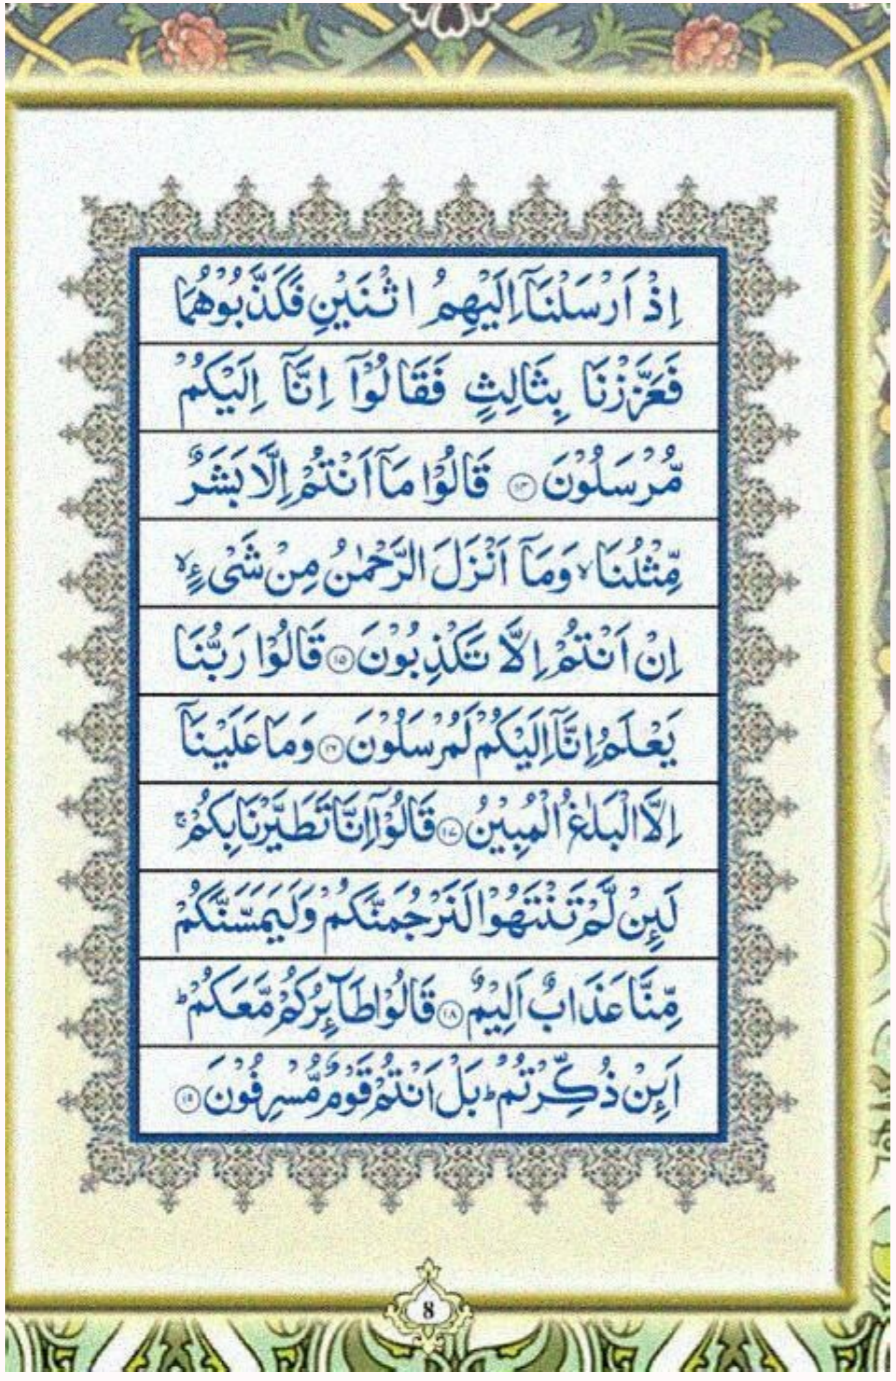 اِذْ اَرْسَلْنَاۤ اِلَيْهِمُ اثْنَيْنِ فَكَذَّبُوْهُمَا
فَعَزَّزْنَا بِثَالِثٍ فَقَالُوْۤا اِنَّاۤ اِلَيْكُمْ
مُّرْسَلُوْنَ ﴿۱۴﴾ قَالُوْا مَاۤ اَنْتُمْ اِلَّا بَشَرٌ
مِّثْلُنَا ۙ وَمَاۤ اَنْزَلَ الرَّحْمٰنُ مِنْ شَیْءٍ ۙ
اِنْ اَنْتُمْ اِلَّا تَكْذِبُوْنَ ﴿۱۵﴾ قَالُوْا رَبُّنَا
يَعْلَمُ اِنَّاۤ اِلَيْكُمْ لَمُرْسَلُوْنَ ﴿۱۶﴾ وَمَا عَلَيْنَاۤ
اِلَّا الْبَلٰغُ الْمُبِيْنُ ﴿۱۷﴾ قَالُوْۤا اِنَّا تَطَيَّرْنَا بِكُمْ ۚ
لَئِنْ لَّمْ تَنْتَهُوْا لَنَرْجُمَنَّكُمْ وَلَيَمَسَّنَّكُمْ
مِّنَّا عَذَابٌ اَلِيْمٌ ﴿۱۸﴾ قَالُوْا طَآئِرُكُمْ مَّعَكُمْ ؕ
اَئِنْ ذُكِّرْتُمْ ؕ بَلْ اَنْتُمْ قَوْمٌ مُّسْرِفُوْنَ ﴿۱۹﴾
8